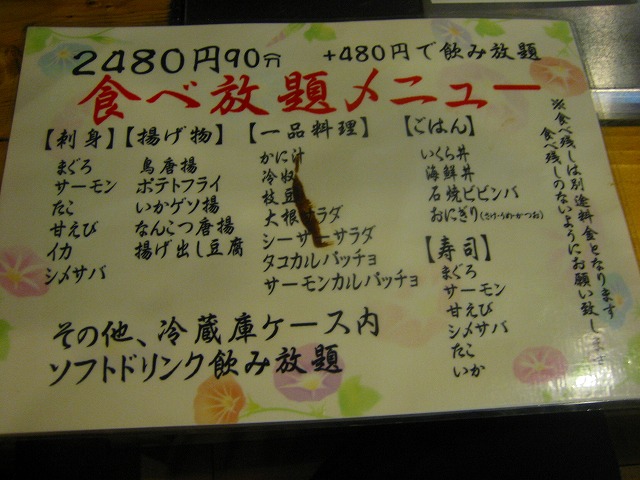 2480円90分 +480円で飲み放題
食べ放題メニュー
【刺身】
まぐろ
サーモン
たこ
甘えび
イカ
シメサバ
【揚げ物】
鳥唐揚
ポテトフライ
いかゲソ揚
なんこつ唐揚
揚げ出し豆腐
【一品料理】
かに汁
冷奴
枝豆
大根サラダ
シーザーサラダ
タコカルパッチョ
サーモンカルパッチョ
【ごはん】
いくら丼
海鮮丼
石焼ビビンバ
おにぎり(さけ・うめ・かつお)
【寿司】
まぐろ
サーモン
甘えび
シメサバ
たこ
いか
※食べ残しは別途料金となります
食べ残しのないようにお願い致します
その他、冷蔵庫ケース内
ソフトドリンク飲み放題